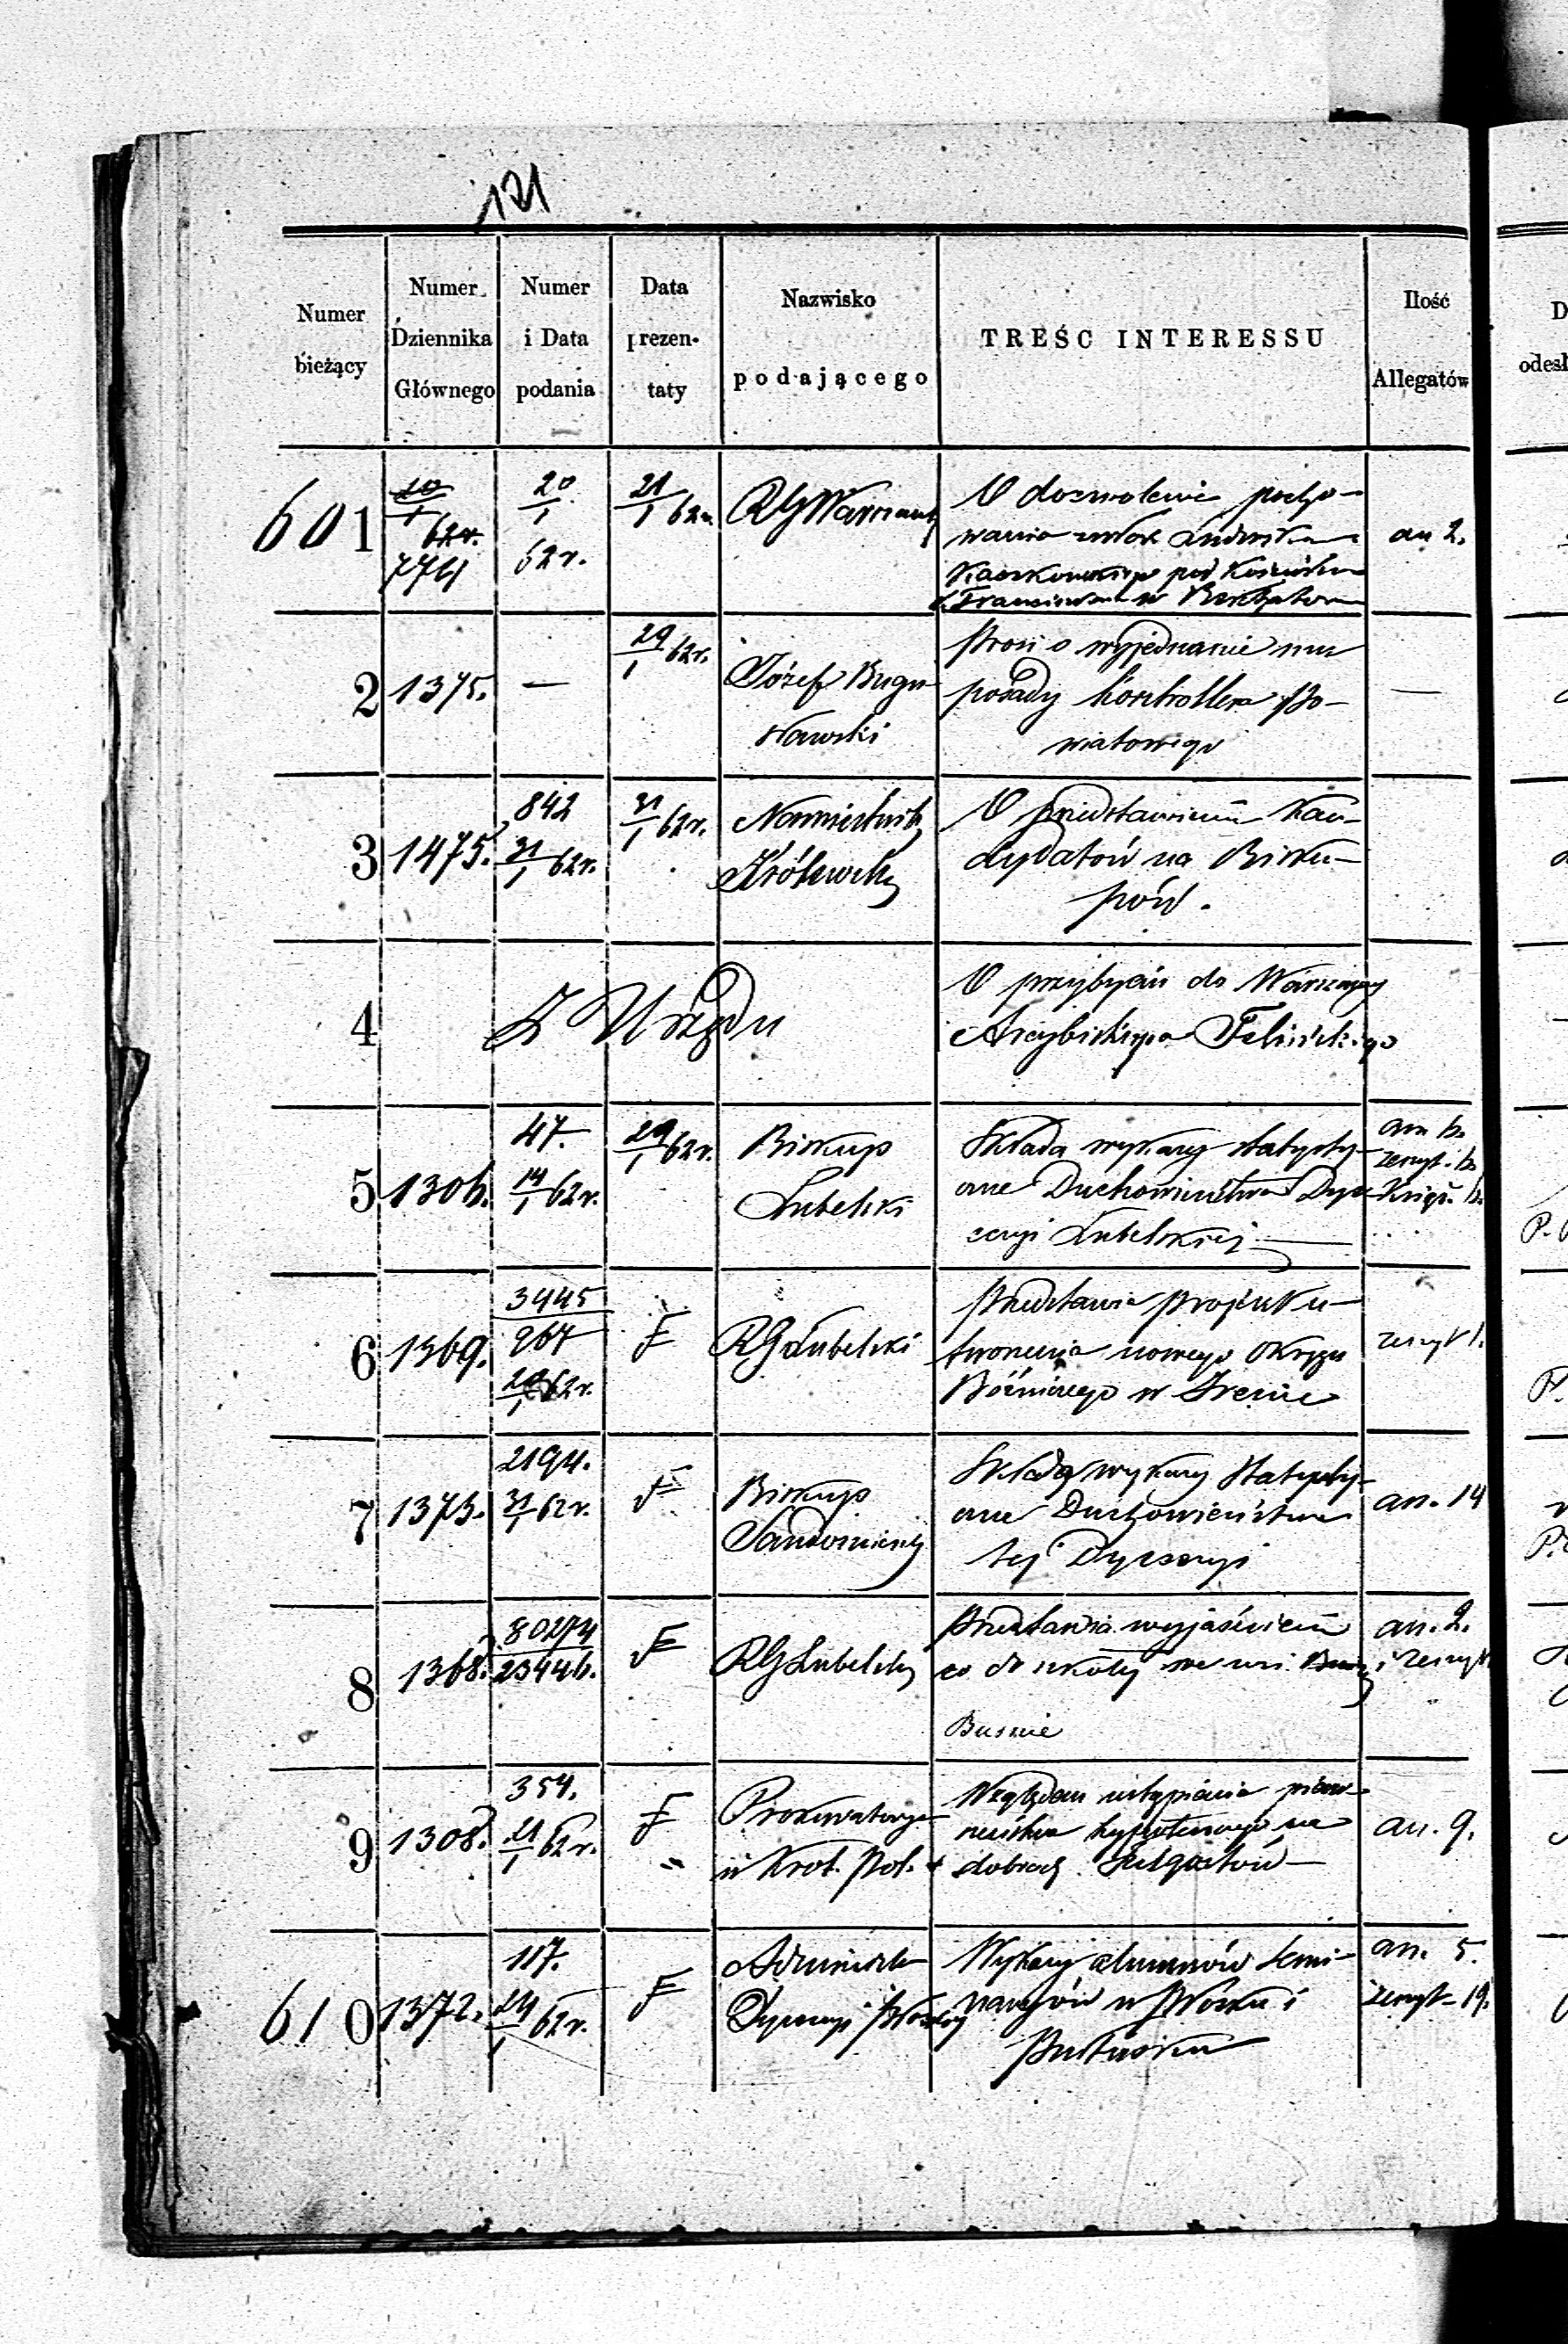 121
Numer bieżący
Numer Dziennika Głównego
Numer i Data podania
Data prezentaty
Nazwisko podającego
TREŚĆ INTERESSU
Ilość Allegatów
601
20/1 62r.
7721
20/1 62r.
21/1 62r.
RGWarszawski
O dozwolenie pocho-
wania zwłok Ludwika
pod Kościołem
w
an 2.
2
1375.
—
29/1 62r.
Józef Bugu-
sławski
Prosi o wyjednanie mu
posady kontrollera Po-
wiatowego
—
3
1475.
842
31/1 62r.
31/1 62r.
Namiestnik
Królewski
O przedstawieniu Kan-
dydatów na Bisku-
pów.
4
Z Urzędu
O przybyciu do Warszawy
Arcybiskupa Felińskiego
5
1306.
47.
14/1 62r.
29/1 62r.
Biskup
Lubelski
Składa wykazy statysty-
czne Duchowieństwa Dye-
cezyi Lubelskiej
an 6.
zeszyt. 6.
Książ. 6.
6
1369.
3445
967
62r.
F
RGLubelski
Przedstawia projekt u-
tworzenia nowego okręgu
Bóżniczego w Irenie
zeszyt 1.
7
1373.
2194.
31/1 62r.
F
Biskup
Sandomierski
Składa wykazy Statysty-
czne Duchowieństwa
tej Dyecezyi
an. 14
8
1368.
80274
23446.
F
RGLubelski
Przedstawia wyjaśnienie
co do szkoły we wsi
Busnie
an. 2.
i zeszyt
9
1308.
354.
21/1 62r.
F
Prokuratorya
w Król. Pol.
Względem ustąpienia pierw-
szeństwa hypotecznego na
dobrach
an. 9.
610
1372.
117.
24/1 62r.
F
Administr
Dyecezyi Płockiej
Wykazy alumnów Semi-
naryów w Płocku i
Pułtusku
an. 5.
zeszyt - 19.